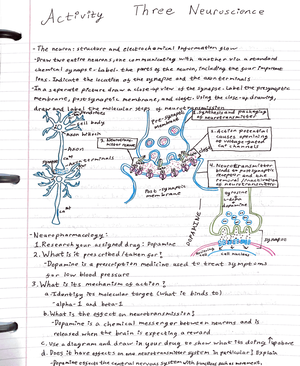 Activity Three Neuroscience
- The neuron: structure and electrochemical information flow
- Draw two entire neurons, one communicating with another via a standard
chemical synapse. Label the parts of the neuron, including the four important
ions. Indicate the location of the synapse and the axon terminals
- In a separate picture draw a close-up view of the synapse. Label the presynaptic
membrane, postsynaptic membrane, and
draw and label the molecular steps of neurotransmission
Dendrites
Cell body
Axon
terminals
Pre-synaptic
membrane
Post-synaptic
membrane
1. Synthesis and packaging
of neurotransmitter
2. Action potential
causes opening
of voltage-gated
Ca+ channels
4. Neurotransmitter
binds to postsynaptic
receptor and the
neurotransmitter
tyrosine
L-dopa
dopamine
DOPAMINE
synapse
cell nucleus
- Neuropharmacology:
1. Research your assigned drug: Dopamine
2. What is it prescribed/taken for?
- Dopamine is a prescription medicine used to treat symptoms
low blood pressure
3. What is its mechanism of action?
a. Identify its molecular target (what it binds to)
- alpha-1 and beta-1
b. What is the effect on neurotransmission?
- Dopamine is a chemical messenger between neurons and is
released when the brain is expecting a reward
c. Use a diagram and draw in your drug to show what its doing ↑ above
d. Does it have effects on one neurotransmitter system in particular? Explain
- Dopamine effects the central nervous system with functions such as movement,